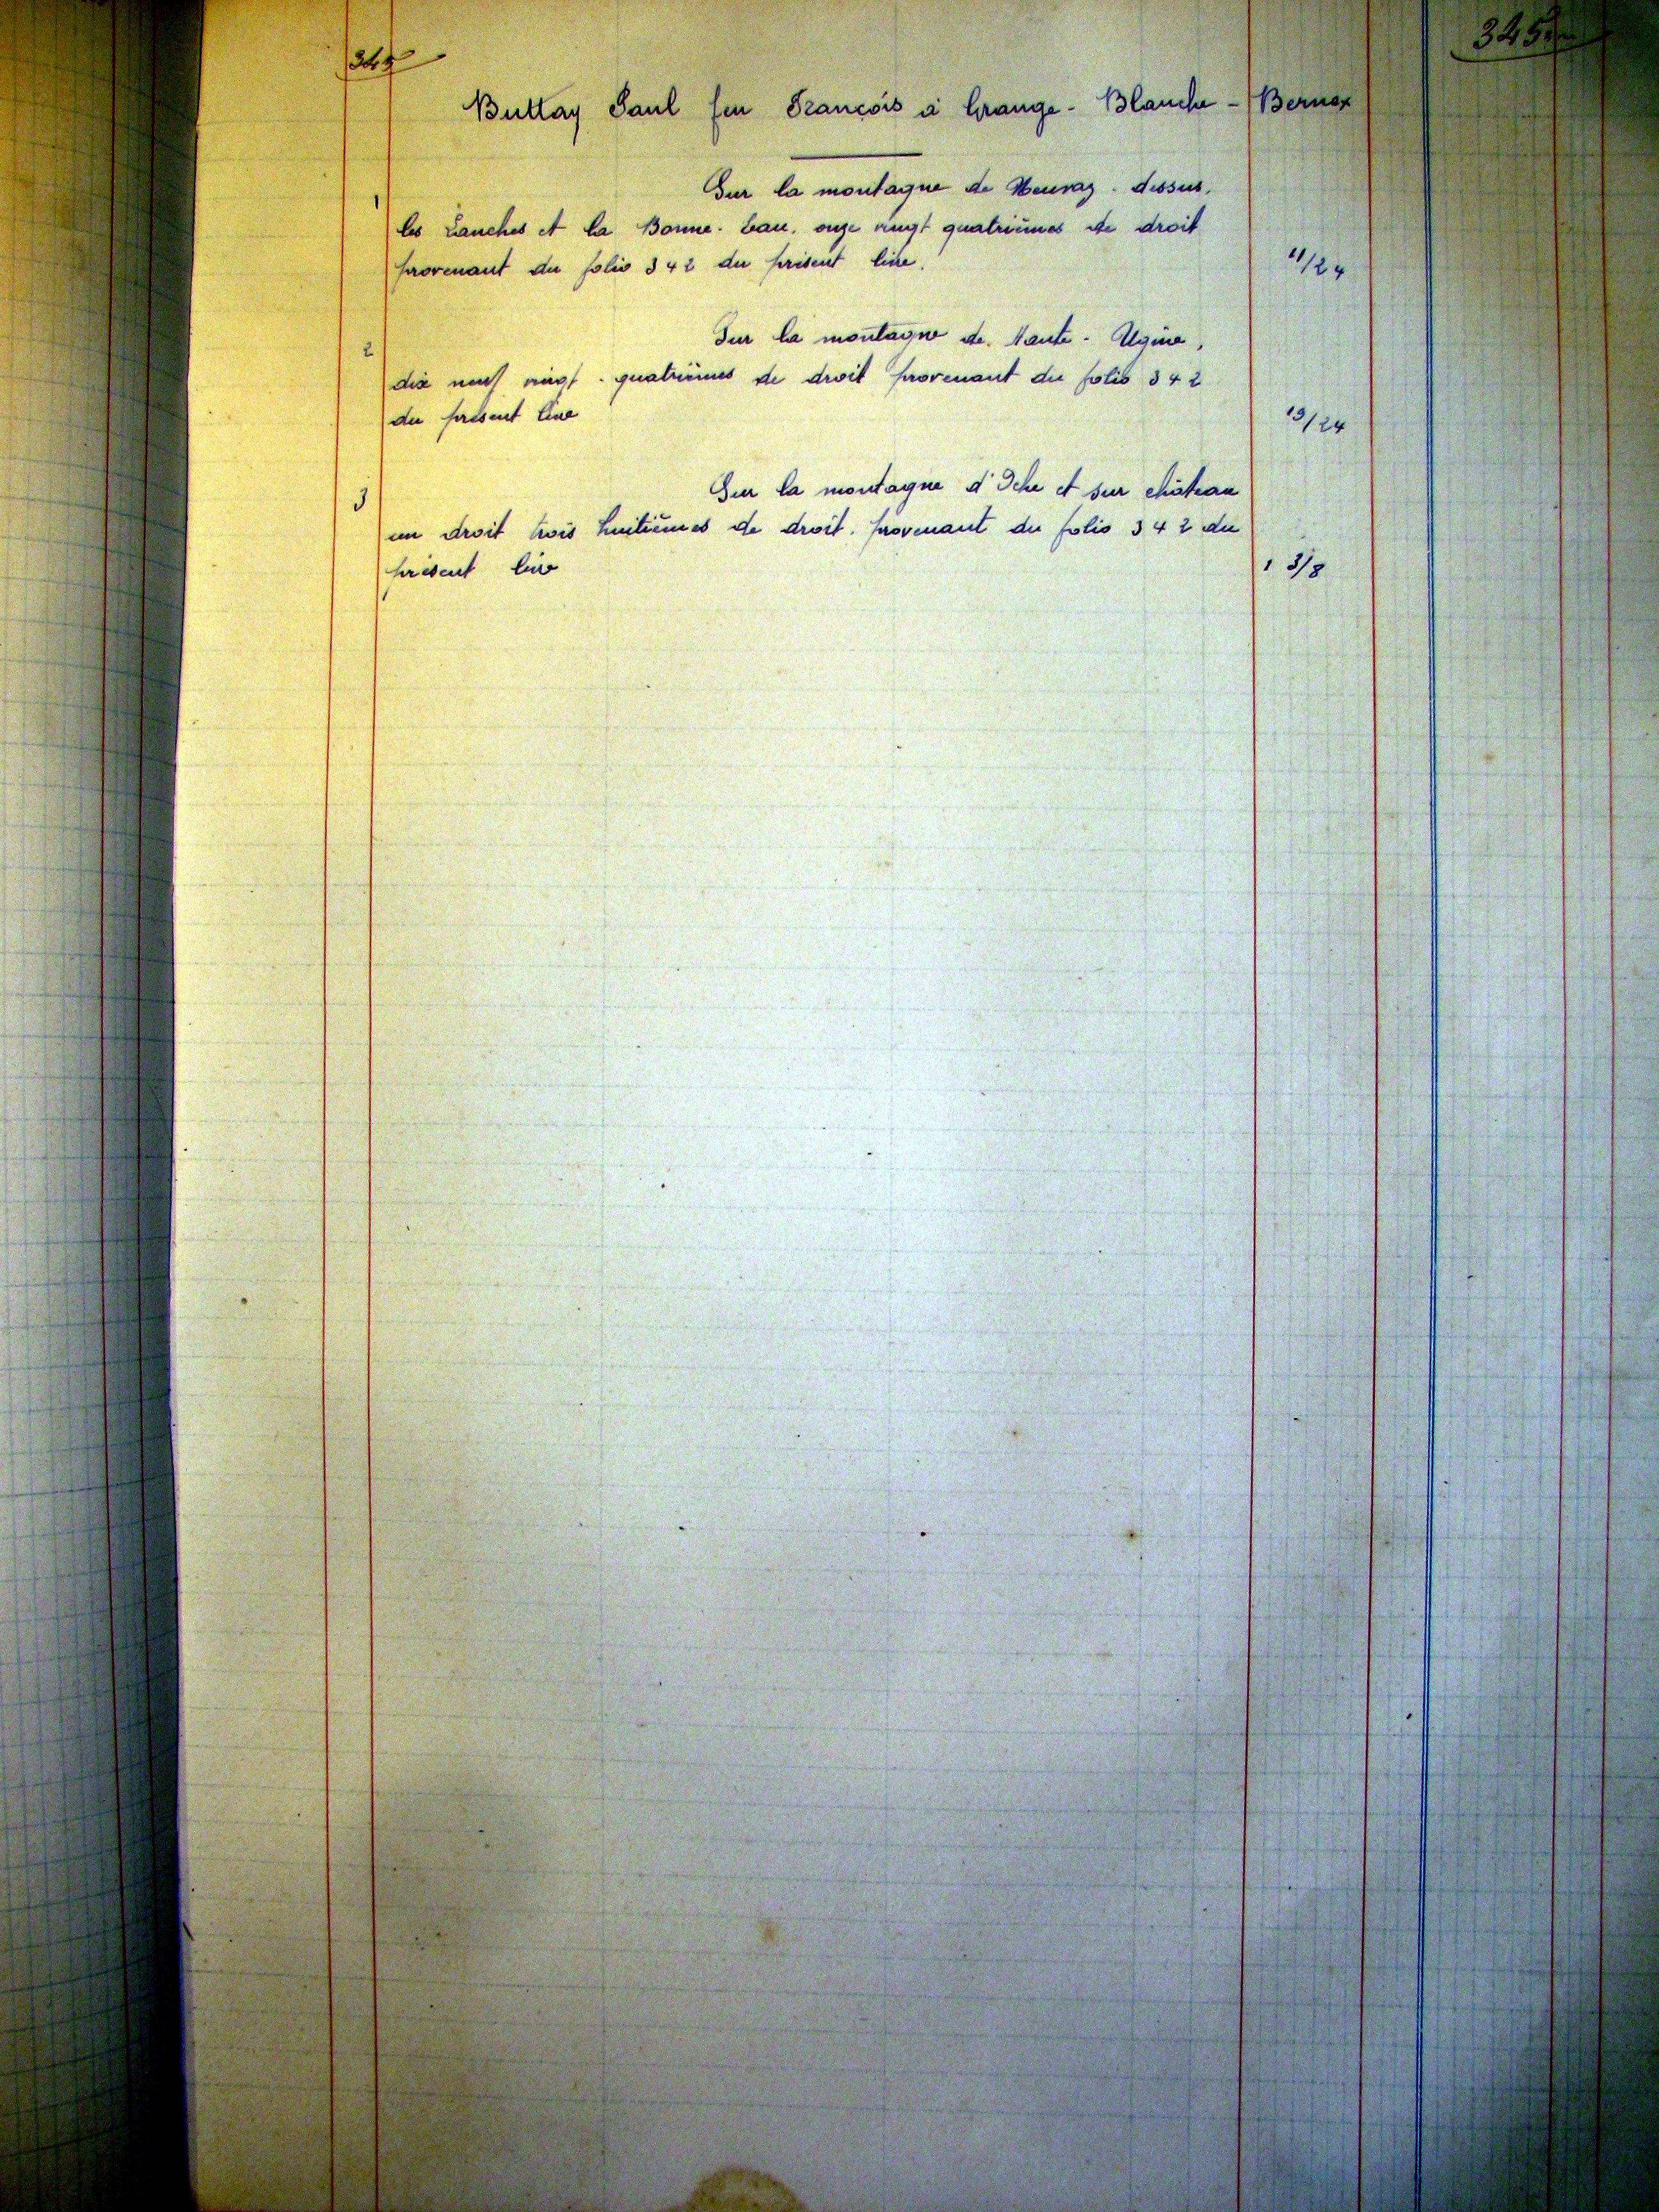 345
345
Buttay Paul feu François à Grange-Blanche - Bernex
1
Sur la montagne de Neuvaz-dessus,
les Lanches et la Bonne-Eau, onze vingt quatrièmes de droit
provenant du folio 342 du présent livre.
11/24
2
Sur la montagne de Haute-Ugine,
dix neuf vingt-quatrièmes de droit provenant du folio 342
du présent livre
19/24
3
Sur la montagne d'Oche et sur château
un droit trois huitièmes de droit, provenant du folio 342 du
présent livre
1 3/8